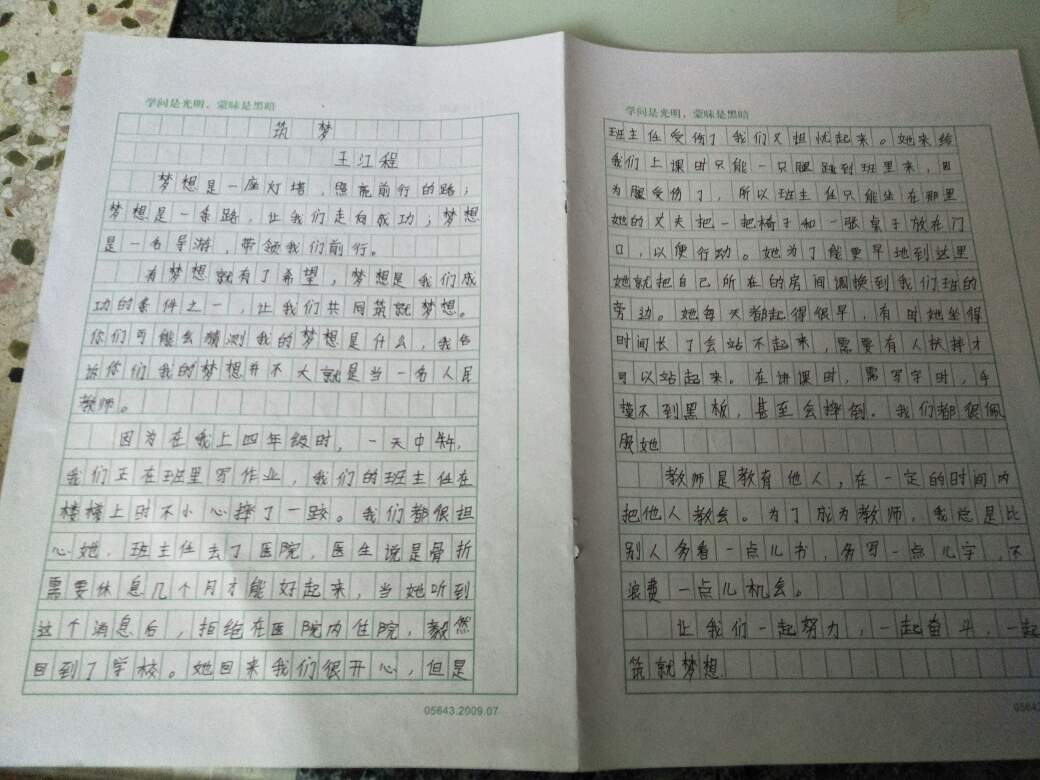 学问是光明，蒙昧是黑暗
筑梦
王江程
梦想是一座灯塔，照亮前行的路；
梦想是一条路，让我们走向成功；梦想
是一名导游，带领我们前行。
有梦想就有了希望，梦想是我们成
功的条件之一，让我们共同筑就梦想。
你们可能会猜测我的梦想是什么，我告
诉你们我的梦想并不大就是当一名人民
教师。
因为在我上四年级时，一天中午，
我们正在班里写作业，我们的班主任在
楼梯上时不小心摔了一跤。我们都很担
心她，班主任去了医院，医生说是骨折
需要休息几个月才能好起来，当她听到
这个消息后，拒绝在医院内住院，毅然
回到了学校。她回来我们很开心，但是
05643.2009.07
学问是光明，蒙昧是黑暗
班主任受伤了我们又担忧起来。她来给
我们上课时只能一只腿踮到班里来，因
为腿受伤了，所以班主任只能坐在那里
她的丈夫把一把椅子和一张桌子放在门
口，以便行动。她为了能更早地到这里
她就把自己所在的房间调换到我们班的
旁边。她每天都起得很早，有时她坐得
时间长了会站不起来，需要有人扶持才
可以站起来。在讲课时，需写字时，手
摸不到黑板，甚至会摔倒。我们都很佩
服她
教师是教育他人，在一定的时间内
把他人教会。为了成为教师，我总是比
别人多看一点儿书，多写一点儿字，不
浪费一点儿机会。
让我们一起努力，一起奋斗，一起
筑就梦想.
0564